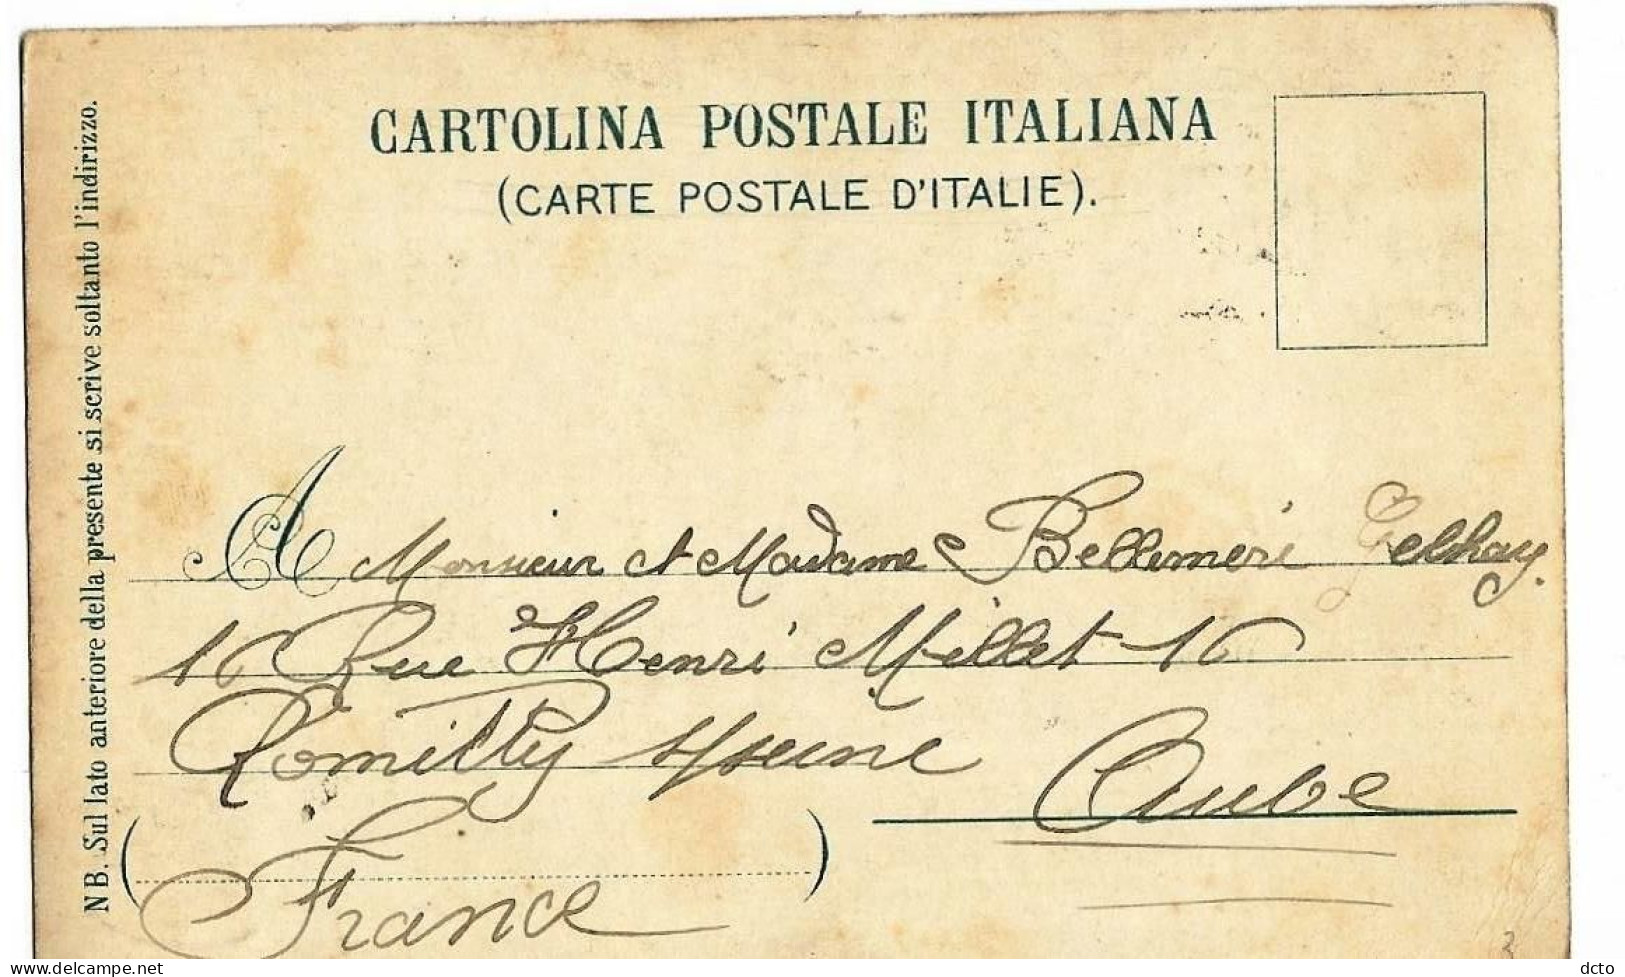 CARTOLINA POSTALE ITALIANA
(CARTE POSTALE D'ITALIE).
NB. Sul lato anteriore della presente si scrive soltanto l'indirizzo.
A Monsieur et Madame Bellemère Gelhay.
16 Rue Henri Millet 16
Romilly s/seine Aube
France
3
dcto